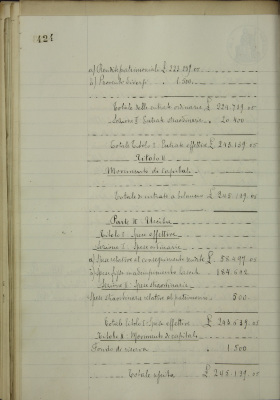 424
a) Rendite patrimoniali £ 223.239.00
b) Proventi diversi " 1.500
Totale delle entrate ordinarie £ 224.739.00
Sezione II Entrate straordinarie " 20.400
Totale Titolo I Entrate effettive £ 245.139.00
Titolo II
Movimento di Capitali
Totale di entrate a bilancio £ 245.139.00
Parte II Uscita
Titolo I Spese effettive
Sezione I Spese ordinarie
a) Spese relative al £ 58.497.00
b) Spese 184.642
Sezione II Spese straordinarie
Spese straordinarie relative al patrimonio " 500
Totale titolo I Spese effettive £ 243.639.00
Titolo II Movimento di capitali
Fondo di riserva " 1.500
Totale uscita £ 245.139.00